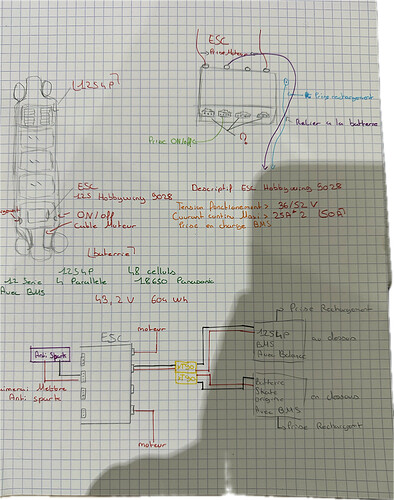 ESC
Prise Moteur
12S4P
Prise rechargement
Relier a la batterie
Prise ON/off
?
ESC
12S Hobbywing 9028
ON/off
Cable Moteur
Descriptif ESC Hobbywing 9028
Tension fonctionement > 36/52 V
Courant continu Maxi > 25A*2 (50A)
Prise en charge BMS
(batterie)
12S4P 48 celluls
12 Serie 4 Parallele 18650 Panasonic
Avec BMS
43,2 V 604 Wh
Prise Rechargement
ESC
moteur
12S4P
BMS
Avec Balance
au dessus
Anti Spark
XT90
XT90
aimerai Mettre
Anti spark
Batterie
Skate
origine
Avec BMS
en dessous
moteur
Prise Rechargment